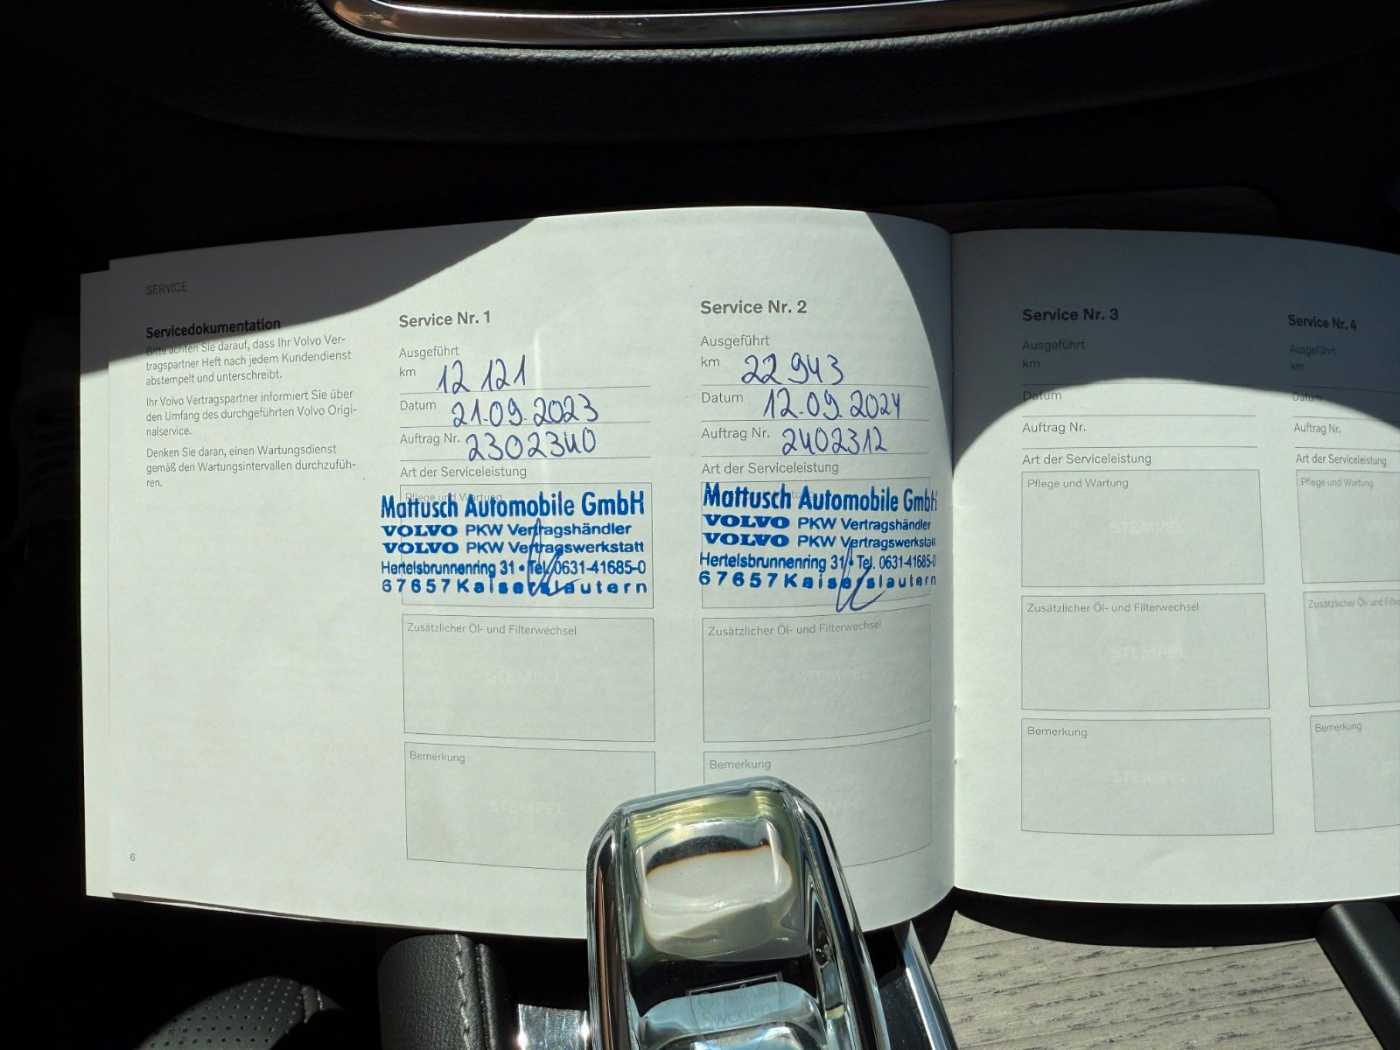 SERVICE
Servicedokumentation
Bitte achten Sie darauf, dass Ihr Volvo Ver-
tragspartner Heft nach jedem Kundendienst
abstempelt und unterschreibt.
Ihr Volvo Vertragspartner informiert Sie über
den Umfang des durchgeführten Volvo Origi-
nalservice.
Denken Sie daran, einen Wartungsdienst
gemäß den Wartungsintervallen durchzufüh-
ren.
6
Service Nr. 1
Ausgeführt
km 12 121
Datum 21.09.2023
Auftrag Nr. 2302340
Art der Serviceleistung
Pflege und Wartung
Mattusch Automobile GmbH
VOLVO PKW Vertragshändler
VOLVO PKW Vertragswerkstatt
Hertelsbrunnenring 31 • Tel. 0631-41685-0
67657 Kaiserslautern
Zusätzlicher Öl- und Filterwechsel
STEMPEL
Bemerkung
STEMPEL
Service Nr. 2
Ausgeführt
km 22 943
Datum 12.09.2024
Auftrag Nr. 2402312
Art der Serviceleistung
Mattusch Automobile GmbH
VOLVO PKW Vertragshändler
VOLVO PKW Vertragswerkstatt
Hertelsbrunnenring 31 • Tel. 0631-41685-0
67657 Kaiserslautern
Zusätzlicher Öl- und Filterwechsel
STEMPEL
Bemerkung
STEMPEL
Service Nr. 3
Ausgeführt
km
Datum
Auftrag Nr.
Art der Serviceleistung
Pflege und Wartung
STEMPEL
Zusätzlicher Öl- und Filterwechsel
STEMPEL
Bemerkung
STEMPEL
Service Nr. 4
Ausgeführt
km
Datum
Auftrag Nr.
Art der Serviceleistung
Pflege und Wartung
Zusätzlicher Öl- und
Bemerkung